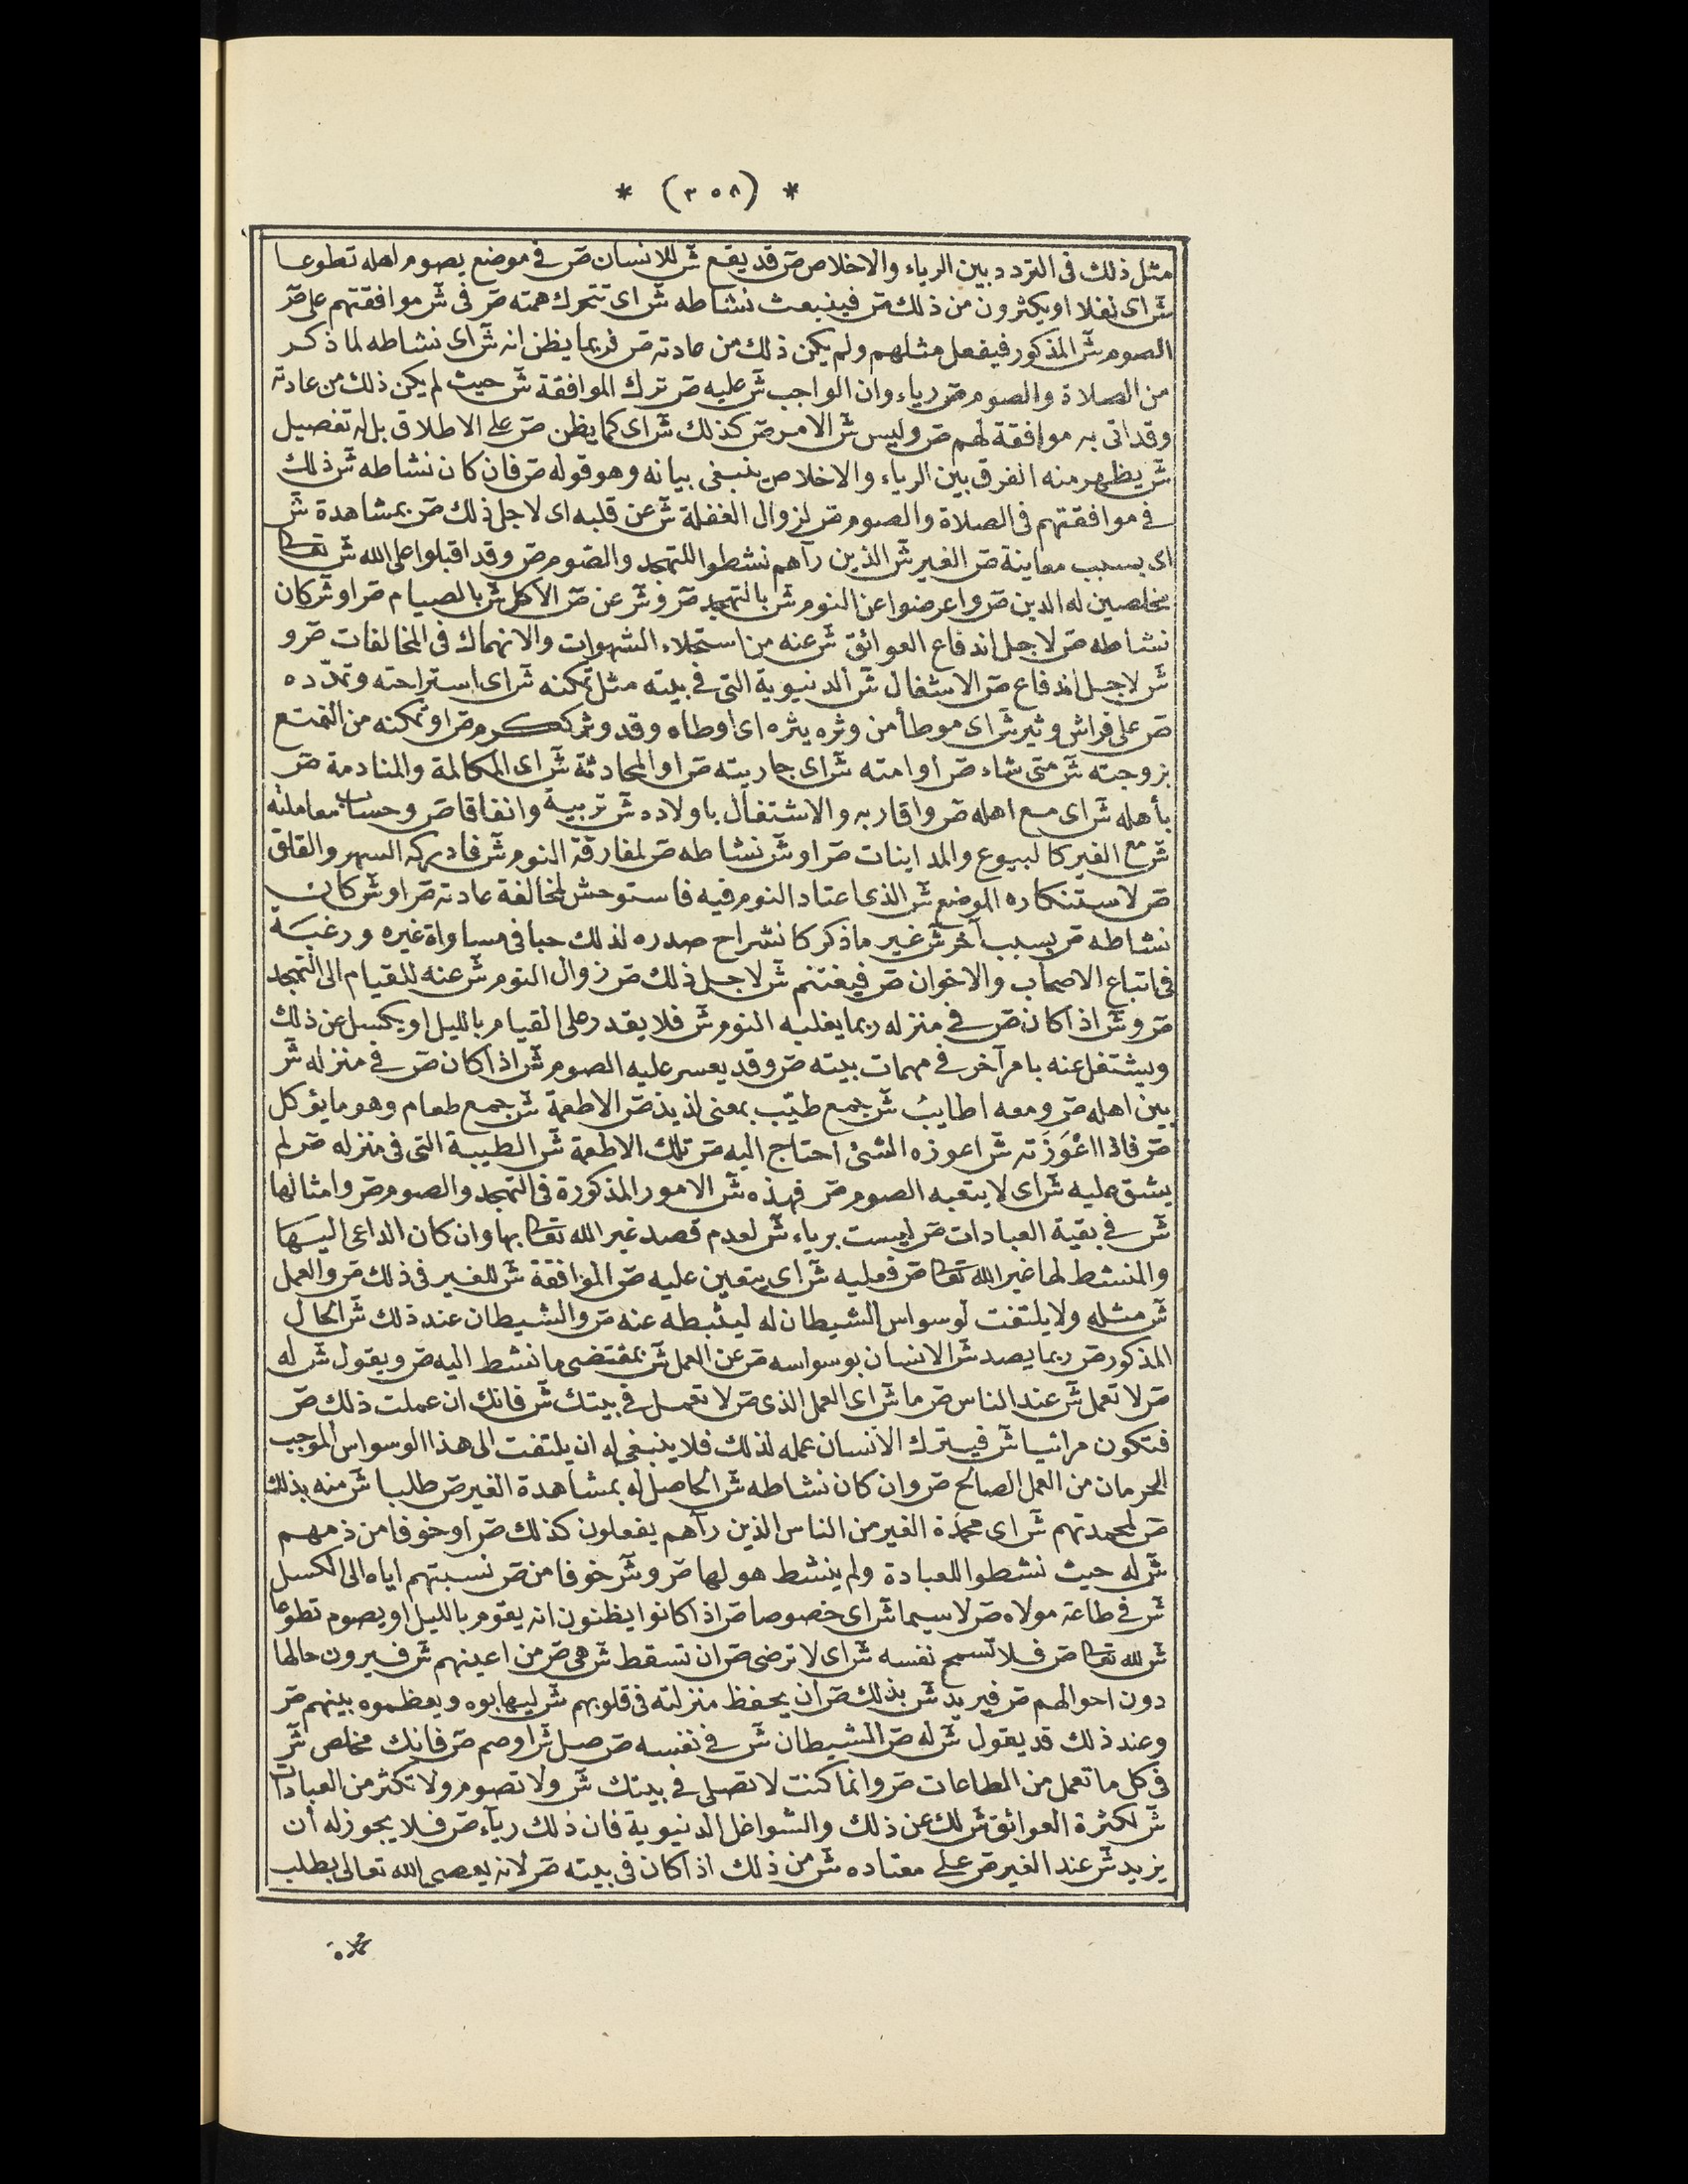 * (٣٥٨) *
مثل ذلك فى التردد بين الرياء والاخلاص ص قد يقع ش للانسان ص فى موضع يصوم اهله تطوعا
ش اى نفلا او يكثرون من ذلك ص فينبعث نشاطه ش اى تتحرك همته ص فى ش موافقتهم على ص
الصوم ش المذكور فيفعل مثلهم ولم يكن ذلك من عادته ص فربما يظن انه ش اى نشاطه لما ذكر
من الصلاة والصوم ص رياء وان الواجب ش عليه ص ترك الموافقة ش حيث لم يكن ذلك من عادته
وقد اتى به موافقة لهم ص وليس ش الامر ص كذلك ش اى كما يظن ص على الاطلاق بل له تفصيل
ش يظهر منه الفرق بين الرياء والاخلاص ينبغى بيانه وهو قوله ص فان كان نشاطه ش ذلك
فى موافقتهم فى الصلاة والصوم ص لزوال الغفلة ش عن قلبه اى لاجل ذلك ص بمشاهدة ش
اى بسبب معاينة ص الغير ش الذين رآهم نشطوا للتهجد والصوم ص وقد اقبلوا على الله ش تعالى
مخلصين له الدين ص واعرضوا عن النوم ش بالتهجد ص و ش عن ص الاكل ش بالصيام ص او ش كان
نشاطه ص لاجل اندفاع العوائق ش عنه من استحلاء الشهوات والانهماك فى المخالفات ص و
ش لاجل اندفاع ص الاشغال ش الدنيوية التى فى بيته مثل تمكنه ش اى استراحته وتمدّده
ص على فراش وثير ش اى موطأ من وثره يثره اى اوطاه وقد وثر ككرم ص او تمكنه من التمتع
بزوجته ش متى شاء ص أو امته ش اى جاريته ص او المحادثة ش اى المكالمة والمنادمة ص
بأهله ش اى مع اهله ص واقاربه والاشتغال باولاده ش تربية وانفاقا ص وحساب معاملته
ش مع الغير كالبيوع والمداينات ص او ش نشاطه ص لمفارقة النوم ش فادركه السهر والقلق
ص لاستنكاره الموضع ش الذى اعتاد النوم فيه فاستوحش لمخالفة عادته ص او ش كان
نشاطه ص بسبب آخر ش غير ما ذكر كانشراح صدره لذلك حبا فى مساواة غيره ورغبة
فى اتباع الاصحاب والاخوان ص فيغتنم ش لاجل ذلك ص زوال النوم ش عنه للقيام الى التهجد
ص و ش اذا كان ص فى منزله ربما يغلبه النوم ش فلا يقدر على القيام بالليل او يكسل عن ذلك
ويشتغل عنه بامر آخر فى مهمات بيته ص وقد يعسر عليه الصوم ش اذا كان ص فى منزله ش
بين اهله ص ومعه اطايب ش جمع طيّب بمعنى لذيذ ص الاطعمة ش جمع طعام وهو ما يؤكل
ص فاذا اعْوَزَته ش اعوزه الشئ احتاج اليه ص تلك الاطعمة ش الطيبة التى فى منزله ص لم
يشق عليه ش اى لا يتعبه الصوم ص فهذه ش الامور المذكورة فى التهجد والصوم ص وامثالها
ش فى بقية العبادات ص ليست برياء ش لعدم قصد غير الله تعالى بها وان كان الداعى اليها
والمنشط لها غير الله تعالى ص فعليه ش اى يتعين عليه ص الموافقة ش للغير فى ذلك ص والعمل
ش مثله ولا يلتفت لوسواس الشيطان له ليثبطه عنه ص والشيطان عند ذلك ش الحال
المذكور ص ربما يصد ش الانسان بوسواسه ص عن العمل ش بمقتضى ما نشط اليه ص ويقول ش له
ص لا تعمل ش عند الناس ص ما ش اى العمل الذى ص لا تعمل فى بيتك ش فانك ان عملت ذلك ص
فتكون مرائيا ش فيترك الانسان عمله لذلك فلا ينبغى له ان يلتفت الى هذا الوسواس الموجب
الحرمان من العمل الصالح ص وان كان نشاطه ش الحاصل له بمشاهدة الغير ص طلبا ش منه بذلك
ص لمحمدتهم ش اى محمدة الغير من الناس الذين رآهم يفعلون كذلك ص او خوفا من ذمهم
ش له حيث نشطوا للعبادة ولم ينشط هو لها ص و ش خوفا من ص نسبتهم اياه الى الكسل
ش فى طاعة مولاه ص لاسيما ش اى خصوصا ص اذا كانوا يظنون انه يقوم بالليل او يصوم تطوعا
ش لله تعالى ص فلا تسمح نفسه ش اى لا ترضى ص ان تسقط ش هى ص من اعينهم ش فيرون حالها
دون احوالهم ص فيريد ش بذلك ص أن يحفظ منزلته فى قلوبهم ش ليهابوه ويعظموه بينهم ص
وعند ذلك قد يقول ش له ص الشيطان ش فى نفسه ص صل ش او صم ص فانك مخلص ش
فى كل ما تعمل من الطاعات ص وانما كنت لا تصلى فى بيتك ش ولا تصوم ولا تكثر من العبادات
ش لكثرة العوائق ش لك عن ذلك والشواغل الدنيوية فان ذلك رياء ص فلا يجوز له أن
يزيد ش عند الغير ص على معتاده ش من ذلك اذا كان فى بيته ص لانه يعصى الله تعالى بطلب
محمدة